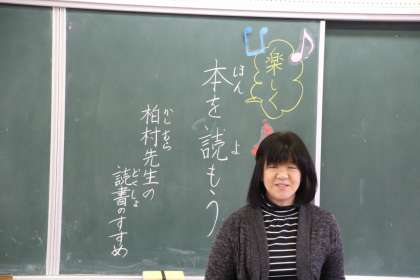 楽しく
本を読もう
ほん
よ
柏村先生の
かしむら
読書のすすめ
どくしょ